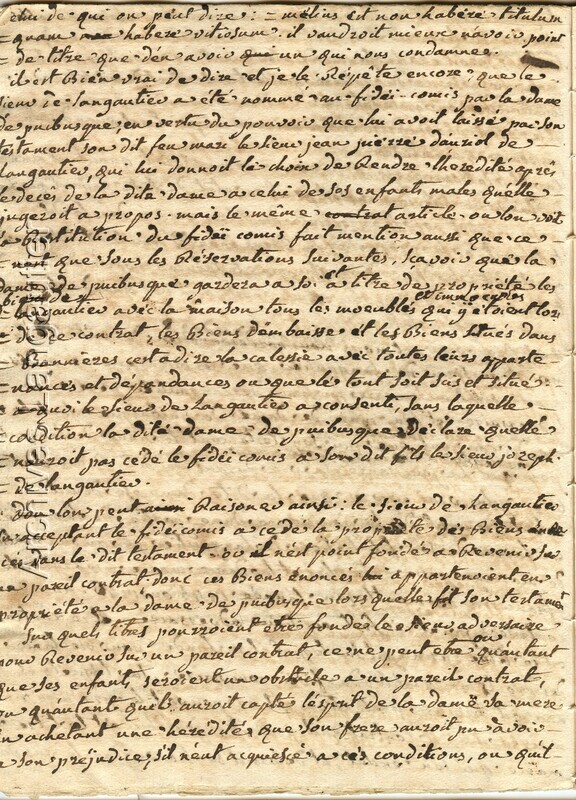 celui de qui on peut dire: melius est non habere titulum
quam habere vitiosum. il vaudroit mieux n'avoir point
de titre que d'en avoir un qui nous condamne.
il est Bien vrai de dire et je le Répète encore, que le
sieur de Langautier a été nommé au fidéi comis par la dame
de puibusque, en vertu du pouvoir que lui avoit laissé par son
testament son dit feu mari le sieur jean pierre dauriol de
Langautier, qui lui donnoit le choix de Rendre lheredité après
le decès de la dite dame a celui de ses enfants males quelle
jugeroit a propos. mais le même article ou lon voit
la Restitution du fidéi comis fait mention aussi que ce
nest que sous les Réservations suivantes, sçavoir que la
dame de puibusque gardera a soi et a titre de proprieté les
biens de Langautier avec la maison tous les moeubles et immoeubles qui y étoient lors
de ce contrat, les Biens dembaisse et les Biens situés dans
Brannieres cest a dire la calessie avec toutes leurs apparte
nances et dépandances ou que le tout soit sis et situé.
a quoi le sieur de Langautier a consenti, sans laquelle
condition la dite dame de puibusque déclare quelle
nauroit pas cédé le fidéi comis a son dit fils le sieur joseph
de langautier.
Dou lon peut Raisoner ainsi: le sieur de Langautier
en acceptant le fidéi comis a cédé la proprieté des Biens énon
cés dans le dit testament. ou il nest point fondé a Revenir sur
un pareil contrat. donc ces Biens énoncés appartenoient en
proprieté a la dame de puibusque lors quelle fit son testament
Sur quels titres pourroient etre fondé le sieur adversaire
pour Revenir sur un pareil contrat, ce ne peut etre ou qu'autant
que ses enfants seroient un obstacle a un pareil contrat,
ou quautant quil auroit capté lesprit de la dame sa mere
en achetant une hérédité que son frere auroit pu avoir
a son préjudice, s'il neut acquiescé a ces conditions, ou quil
Archives Langautier